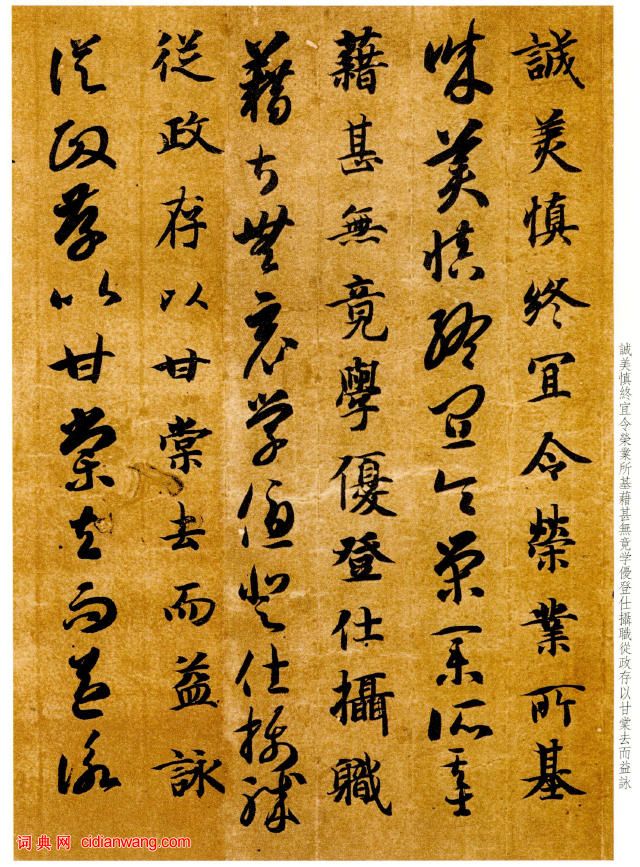 誠美慎終宜令榮業所基
誠美慎終宜令榮業所基
藉甚無竟學優登仕攝職
藉甚無竟學優登仕攝職
從政存以甘棠去而益詠
從政存以甘棠去而益詠
誠美慎終宜令榮業所基藉甚無竟学優登仕攝職從政存以甘棠去而益詠
词典网 cidianwang.com